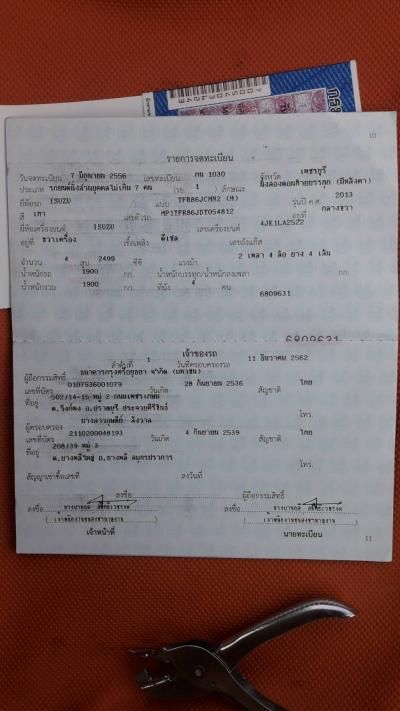 10
รายการจดทะเบียน
วันจดทะเบียน 7 มิถุนายน 2556 เลขทะเบียน กน 1030 จังหวัด เพชรบุรี
ประเภท รถยนต์นั่งส่วนบุคคลไม่เกิน 7 คน (รย. 1) ลักษณะ นั่งสองตอนท้ายบรรทุก (มีหลังคา)
ยี่ห้อรถ ISUZU แบบ TFR86JCMN2 (M) รุ่นปี ค.ศ. 2013
สี เทา เลขตัวรถ MP1TFR86JDT054812 อยู่ที่ กลางขวา
ยี่ห้อเครื่องยนต์ ISUZU เลขเครื่องยนต์ 4JK1LA2522
อยู่ที่ ขวาเครื่อง เชื้อเพลิง ดีเซล เลขถังแก๊ส
จำนวน 4 สูบ 2499 ซีซี แรงม้า 2 เพลา 4 ล้อ ยาง 4 เส้น
น้ำหนักรถ 1900 กก. น้ำหนักบรรทุก/น้ำหนักลงเพลา กก.
น้ำหนักรวม 1900 กก. ที่นั่ง 4 คน
6809631
6809631
เจ้าของรถ
ลำดับที่ 1 วันที่ครอบครองรถ 11 ธันวาคม 2562
ผู้ถือกรรมสิทธิ์ ธนาคารกรุงศรีอยุธยา จำกัด (มหาชน)
เลขที่บัตร 0107536001079 วันเกิด 28 กันยายน 2536 สัญชาติ ไทย
ที่อยู่ 502/14-15 หมู่ 2 ถนนเพชรเกษม
ต.วังก์พง อ.ปราณบุรี ประจวบคีรีขันธ์ โทร.
ผู้ครอบครอง
เลขที่บัตร 2110200048193 วันเกิด 4 กันยายน 2539 สัญชาติ ไทย
ที่อยู่ 208/39 หมู่ 3
ต.บางพลีใหญ่ อ.บางพลี สมุทรปราการ โทร.
สัญญาเช่าซื้อเลขที่ ลงวันที่
ลงชื่อ ผู้ถือกรรมสิทธิ์
ลงชื่อ ลงชื่อ
เจ้าหน้าที่ นายทะเบียน
11